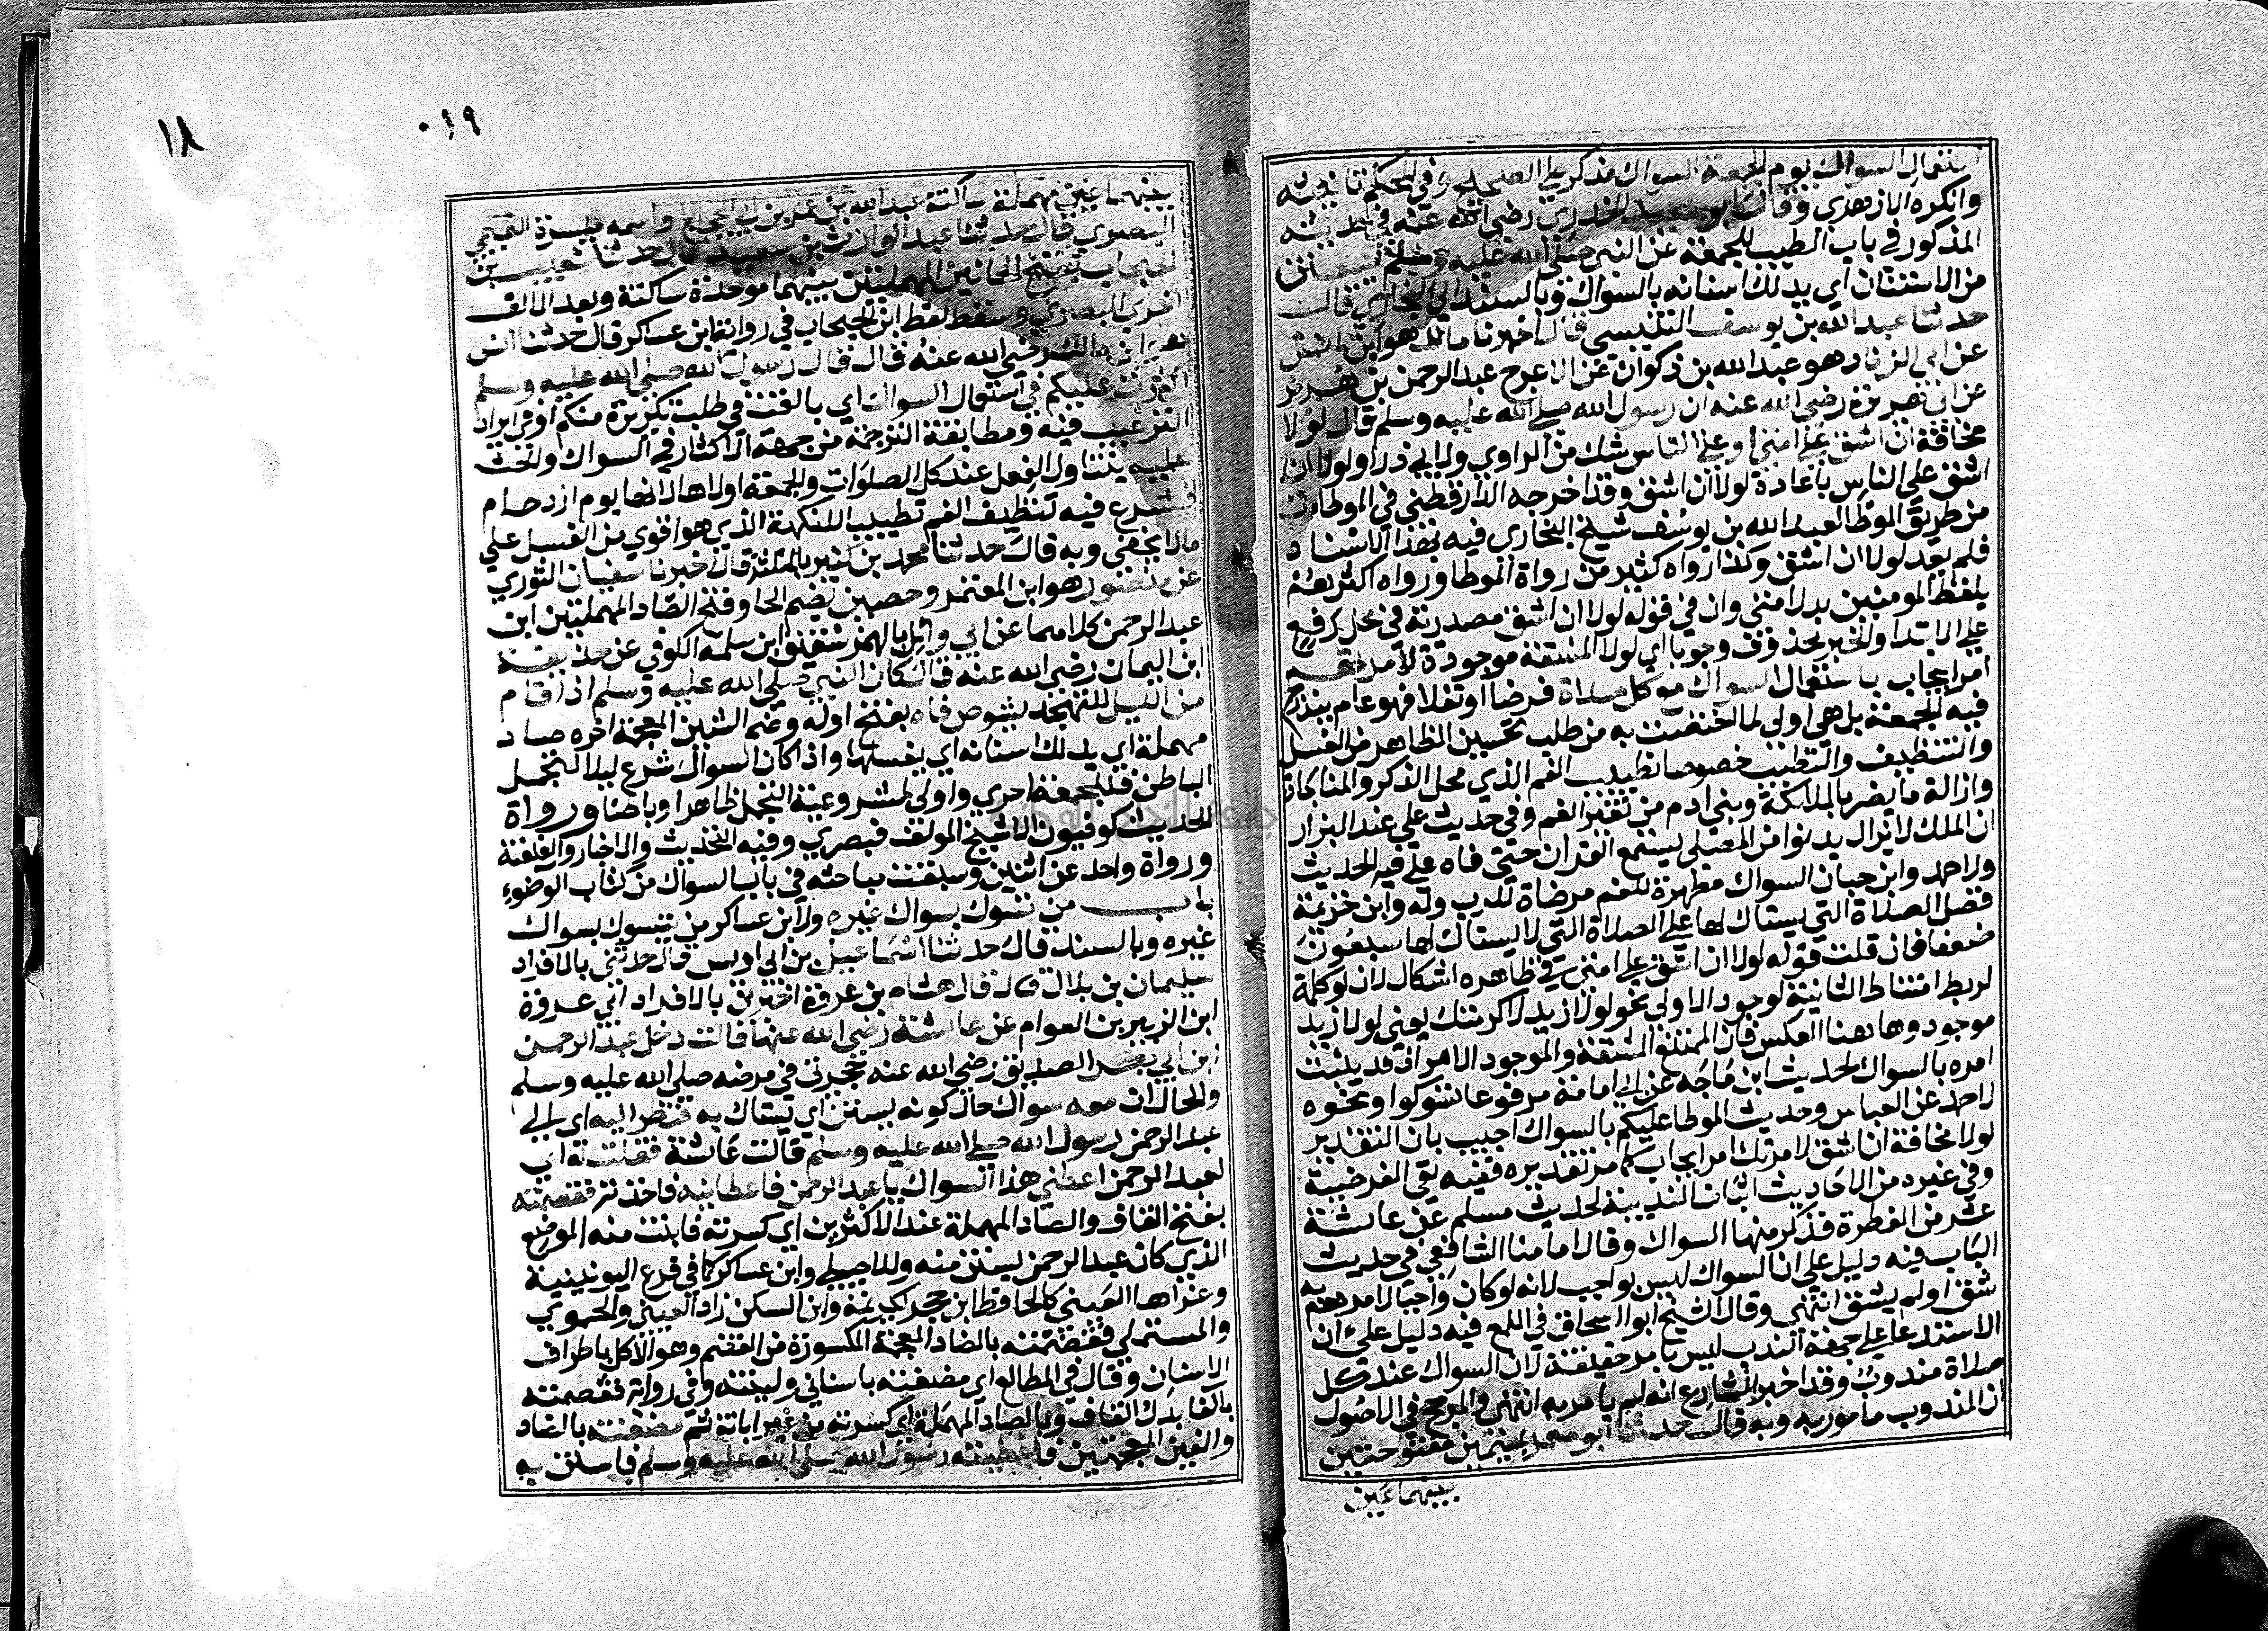 استعمال السواك يوم الجمعة السواك مذكر على الصحيح وفي المحكم تانيثه
وانكره الازهري وقال ابو سعيد الخدري رضي الله عنه في حديثه
المذكور في باب الطيب للجمعة عن النبي صلى الله عليه وسلم يستن
من الاستنان اي يدلك اسنانه بالسواك وبالسند الى البخاري قال
حدثنا عبد الله بن يوسف التنيسي قال اخبرنا مالك هو ابن انس
عن ابي الزناد هو عبد الله بن ذكوان عن الاعرج عبد الرحمن بن هرمز
عن ابي هريرة رضي الله عنه ان رسول الله صلى الله عليه وسلم قال لولا
مخافة ان اشق على امتي او على الناس شك من الراوي ولابي ذر او لولا ان
اشق على الناس باعادة لولا ان اشق وقد اخرجه الدارقطني في الموطات
من طريق الموطا لعبد الله بن يوسف شيخ البخاري فيه بهذا الاسناد
فلم يعد لولا ان اشق وكذا رواه كثير من رواة الموطا ورواه اكثرهم
بلفظ المومنين بدل امتي وان في قوله لولا ان اشق مصدرية في محل رفع
على الابتدا والخبر محذوف وجوبا اي لولا المشقة موجودة لامرتهم
امر ايجاب باستعمال السواك مع كل صلاة فرضا او نفلا فهو عام يندرج
فيه الجمعة بل هي اولى لما اختصت به من طلب تحسين الظاهر من الغسل
والتنظيف والتطيب خصوصا تطييب الفم الذي محل الذكر والمناجاة
وازالة ما يضر بالملائكة وبني ادم من تغير الفم وفي حديث علي عند البزار
ان الملك لا يزال يدنوا من المصلي يستمع القران حتى فاه على فيه الحديث
ولاحمد وابن حبان السواك مطهرة للفم مرضاة للرب وله وابن خزيمة
فضل الصلاة التي يستاك لها على الصلاة التي لا يستاك لها سبعون
ضعفا فان قلت قوله لولا ان اشق على امتي في ظاهره اشكال لان لو كلمة
لربط امتناط الثانية لوجود الاولى نحو لولا زيد لاكرمتك يعني لولا زيد
موجود وهاهنا العكس فان الممتنع المشقة والموجود الامر اذ قد يثبت
امره بالسواك لحديث ابن ماجه عن ابي امامة مرفوعا تسوكوا ونحوه
لاحمد عن العباس وحديث الموطا عليكم بالسواك اجيب بان التقدير
لولا مخافة ان اشق لامرتك امر ايجاب كما مر تقديره ففيه نفي الفرضية
وفي غيره من الاحاديث اثبات الندبية لحديث مسلم عن عائشة
عشر من الفطرة فذكر منها السواك وقال امامنا الشافعي في حديث
الباب فيه دليل على ان السواك ليس بواجب لانه لو كان واجبا لامرهم به
شق او لم يشق انتهى وقال الشيخ ابو اسحاق في اللمع فيه دليل على ان
الاستدعا على جهة الندب ليس بامر حقيقة لان السواك عند كل
صلاة مندوب وقد اخبر الشارع انه لم يامر به انتهى والمرجح في الاصول
ان المندوب مامور به وبه قال حدثنا ابو معمر بميمين مفتوحتين
بينهما عين
٠١٩
١٨
بينهما عين مهملة ساكنة عبد الله بن عمر بن ابي الحجاج واسمه ميسرة التميمي
البصري قال حدثنا عبد الوارث بن سعيد قال حدثنا شعيب بن
الحبحاب بفتح الحائين المهملتين بينهما موحدة ساكنة وبعد الالف
اخرى البصري وسقط لفظ ابن الحبحاب في رواية ابن عساكر قال حدثنا انس
هو ابن مالك رضي الله عنه قال قال رسول الله صلى الله عليه وسلم
اكثرت عليكم في استعمال السواك اي بالغت في طلب تكريره منكم او في ايراد
الترغيب فيه ومطابقة الترجمة من جهة الاكثار في السواك والحث
عليه يتناول الفعل عند كل الصلوات والجمعة اولاها لانها يوم ازدحام
فشرع فيه تنظيف الفم تطييبا للنكهة الذي هو اقوى من الغسل على
ما لا يخفى وبه قال حدثنا محمد بن كثير بالمثلثة قال اخبرنا سفيان الثوري
عن منصور هو ابن المعتمر وحصين بضم الحا وفتح الصاد المهملتين ابن
عبد الرحمن كلاهما عن ابي وائل بالهمز شقيق ابن سلمة الكوفي عن حذيفة
ابن اليمان رضي الله عنه قال كان النبي صلى الله عليه وسلم اذا قام
من الليل للتهجد يشوص فاه بفتح اوله وضم الشين المعجمة اخره صاد
مهملة اي يدلك اسنانه اي يغسلها واذا كان السواك شرع ليلا لتجمل
الباطن فللجمعة احرى واولى لمشروعية التجمل ظاهرا وباطنا ورواة
الحديث كوفيون الا شيخ المولف فبصري وفيه التحديث والاخبار والعنعنة
ورواة واحد عن اثنين وسبقت مباحثه في باب السواك من كتاب الوضوء
باب من تسوك بسواك غيره ولابن عساكر من يتسوك بسواك
غيره وبالسند قال حدثنا اسماعيل بن ابي اويس قال حدثني بالافراد
سليمان بن بلال قال قال هشام بن عروة اخبرني بالافراد ابي عروة
ابن الزبير بن العوام عن عائشة رضي الله عنها قالت دخل عبد الرحمن
ابن ابي بكر الصديق رضي الله عنه حجرتي في مرضه صلى الله عليه وسلم
والحال ان معه سواك حال كونه يستن اي يستاك به فنظر اليه اي الى
عبد الرحمن رسول الله صلى الله عليه وسلم قالت عائشة فقلت له اي
لعبد الرحمن اعطني هذا السواك يا عبد الرحمن فاعطانيه فاخذته فقصمته
بفتح القاف والصاد المهملة عند الاكثرين اي كسرته فابنت منه الموضع
الذي كان عبد الرحمن يستن منه وللاصيلي وابن عساكر كما في فرع اليونينية
وعزاها العيني كالحافظ ابن حجر لكريمة وابن السكن زاد العيني والحموي
والمستملي فقضمته بالضاد المعجمة المكسورة من القضم وهو الاكل باطراف
الاسنان وقال في المطالع اي مضغته باسناني ولينته وفي رواية ففصمته
بالفا بدل القاف وبالصاد المهملة اي كسرته من غير ابانة ثم مضغته بالضاد
والغين المعجمتين فاعطيته رسول الله صلى الله عليه وسلم فاستن به